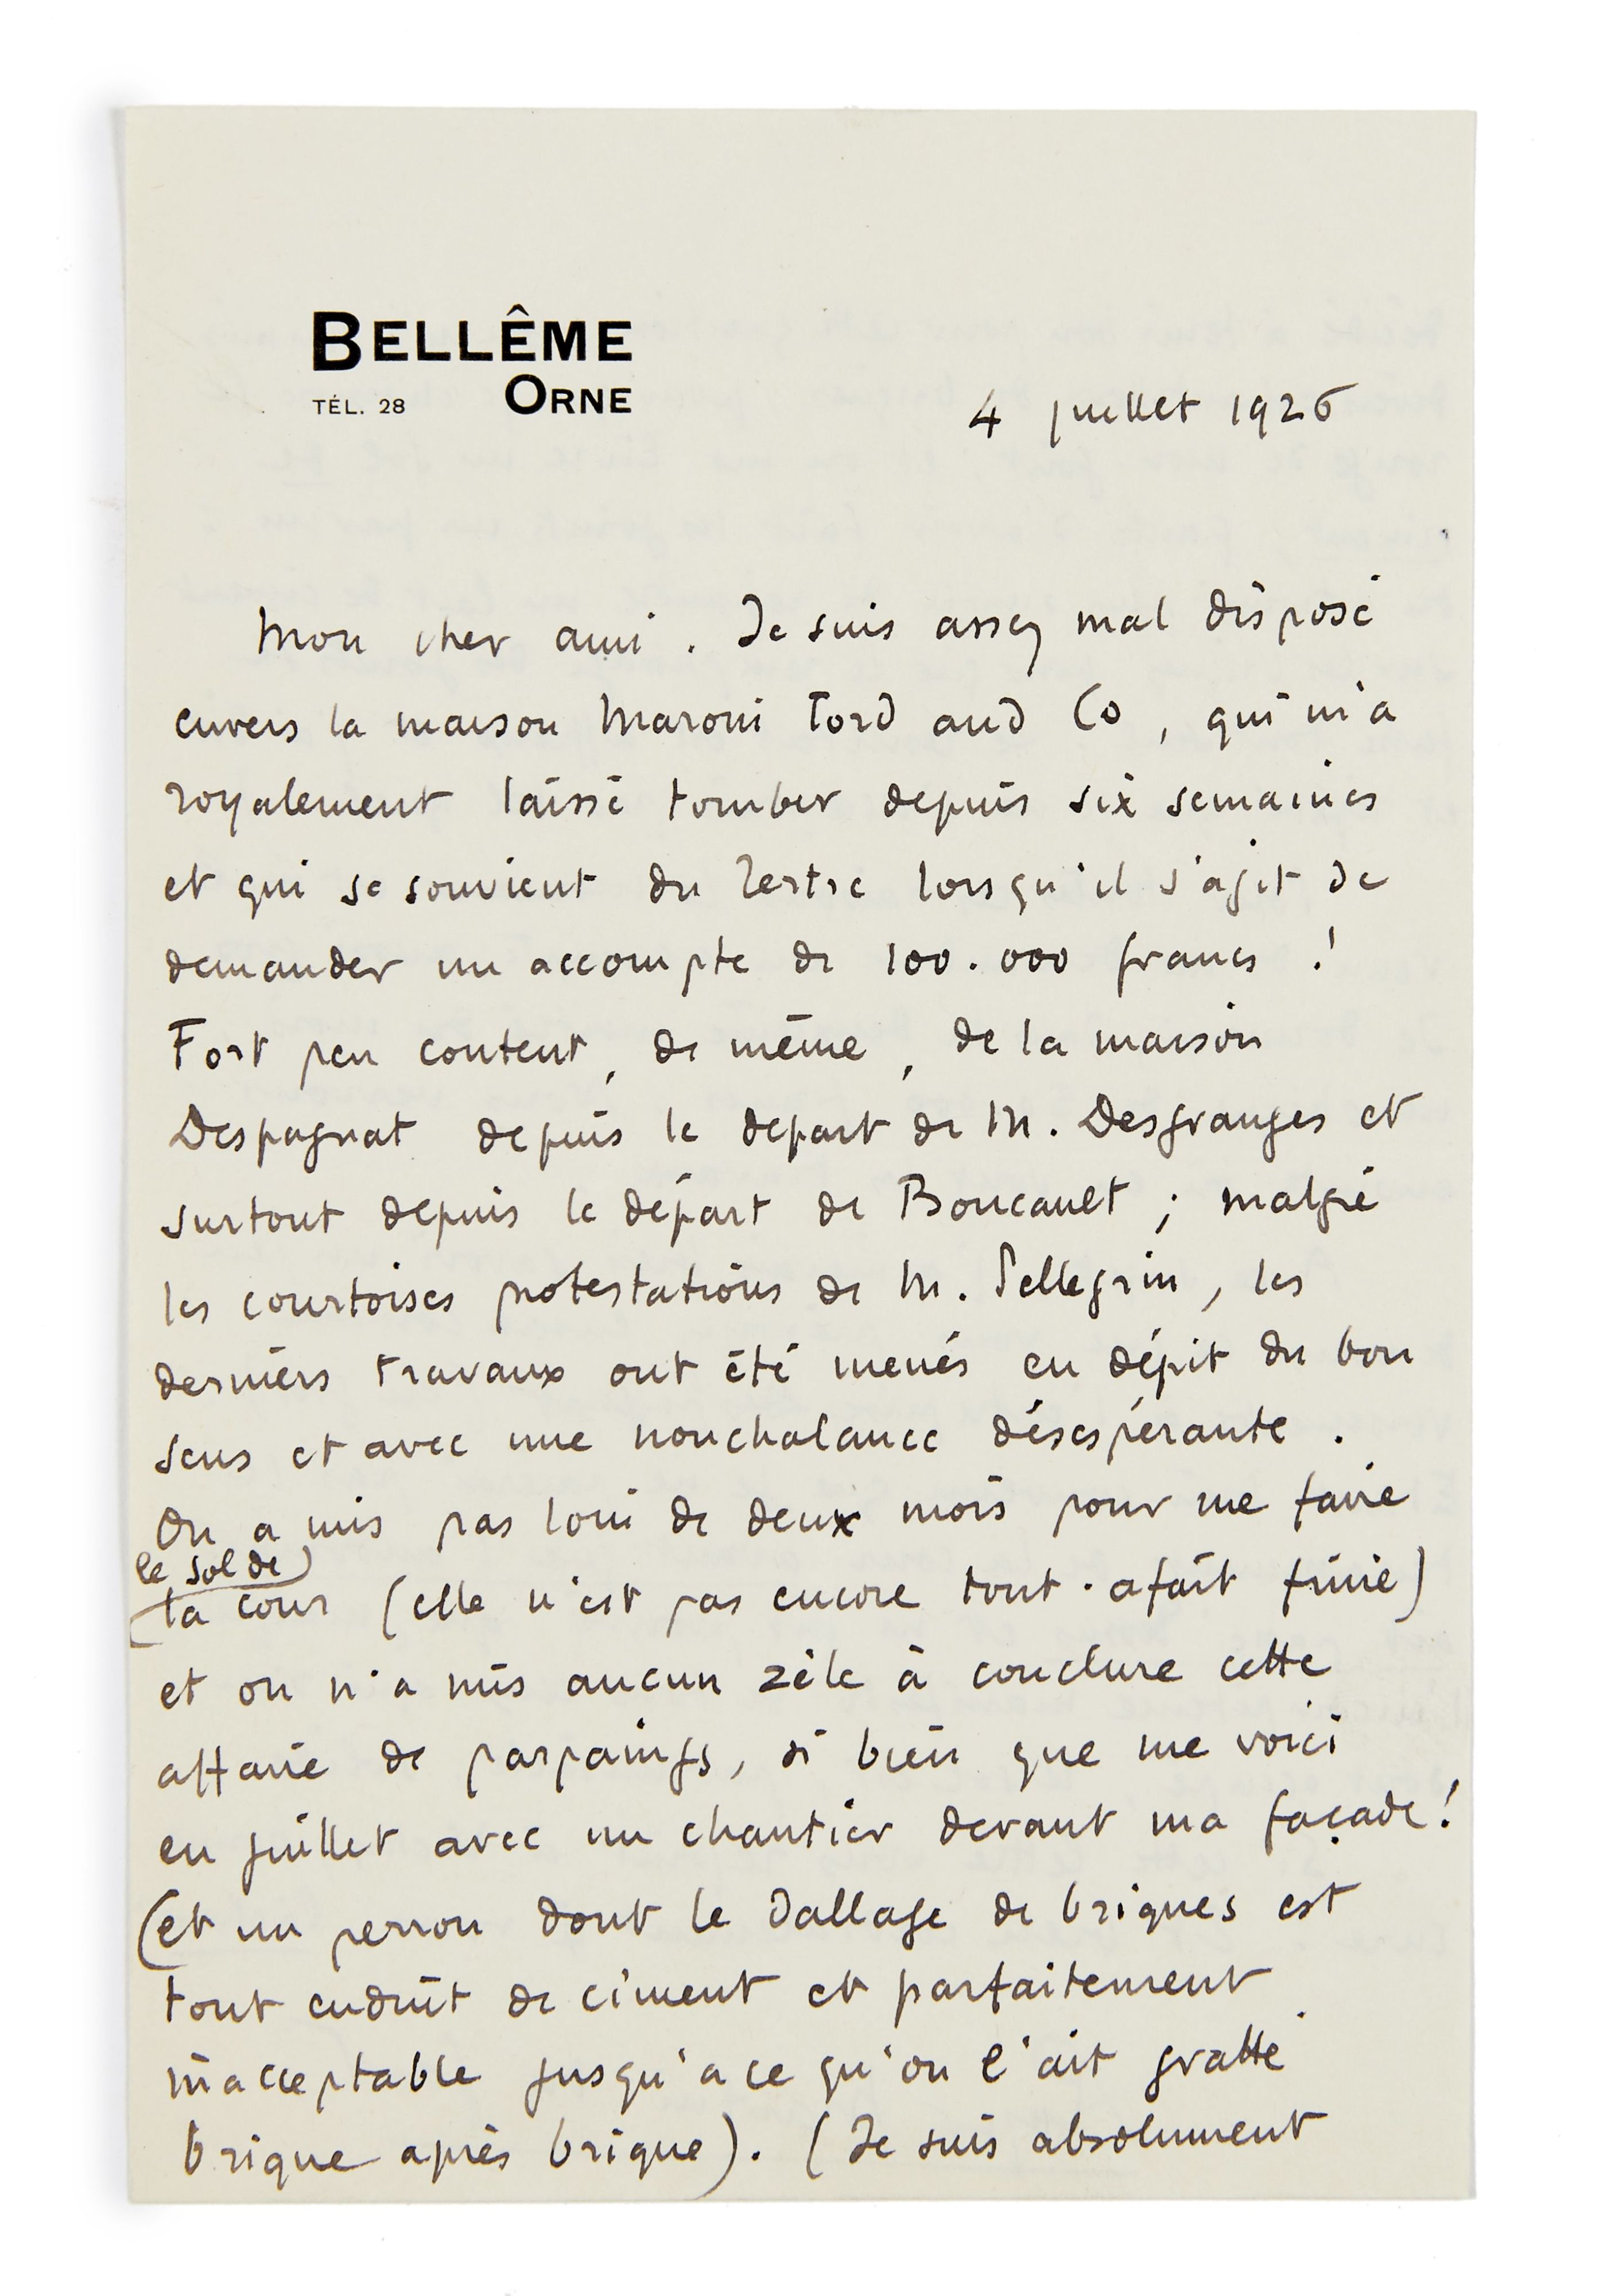 BELLÊME
TÉL. 28 ORNE
4 juillet 1926
Mon cher ami. Je suis assez mal disposé
envers la maison Maroni Ford and Co, qui m'a
royalement laissé tomber depuis six semaines
et qui se souvient du Tertre lorsqu'il s'agit de
demander un accompte de 100.000 francs !
Fort peu content, de même, de la maison
Despagnat depuis le départ de M. Desgranges et
surtout depuis le départ de Boucault ; malgré
les courtoises protestations de M. Pellegrin, les
derniers travaux ont été menés en dépit du bon
sens et avec une nonchalance désespérante.
On a mis pas loin de deux mois pour me faire
le sol de
la cour (elle n'est pas encore tout-a fait finie)
et on n'a mis aucun zèle à conclure cette
affaire de parpaings, si bien que me voici
en juillet avec un chantier devant ma façade !
(et un perron dont le dallage de briques est
tout enduit de ciment et parfaitement
inacceptable jusqu'a ce qu'on l'ait gratté
brique après brique). (Je suis absolument